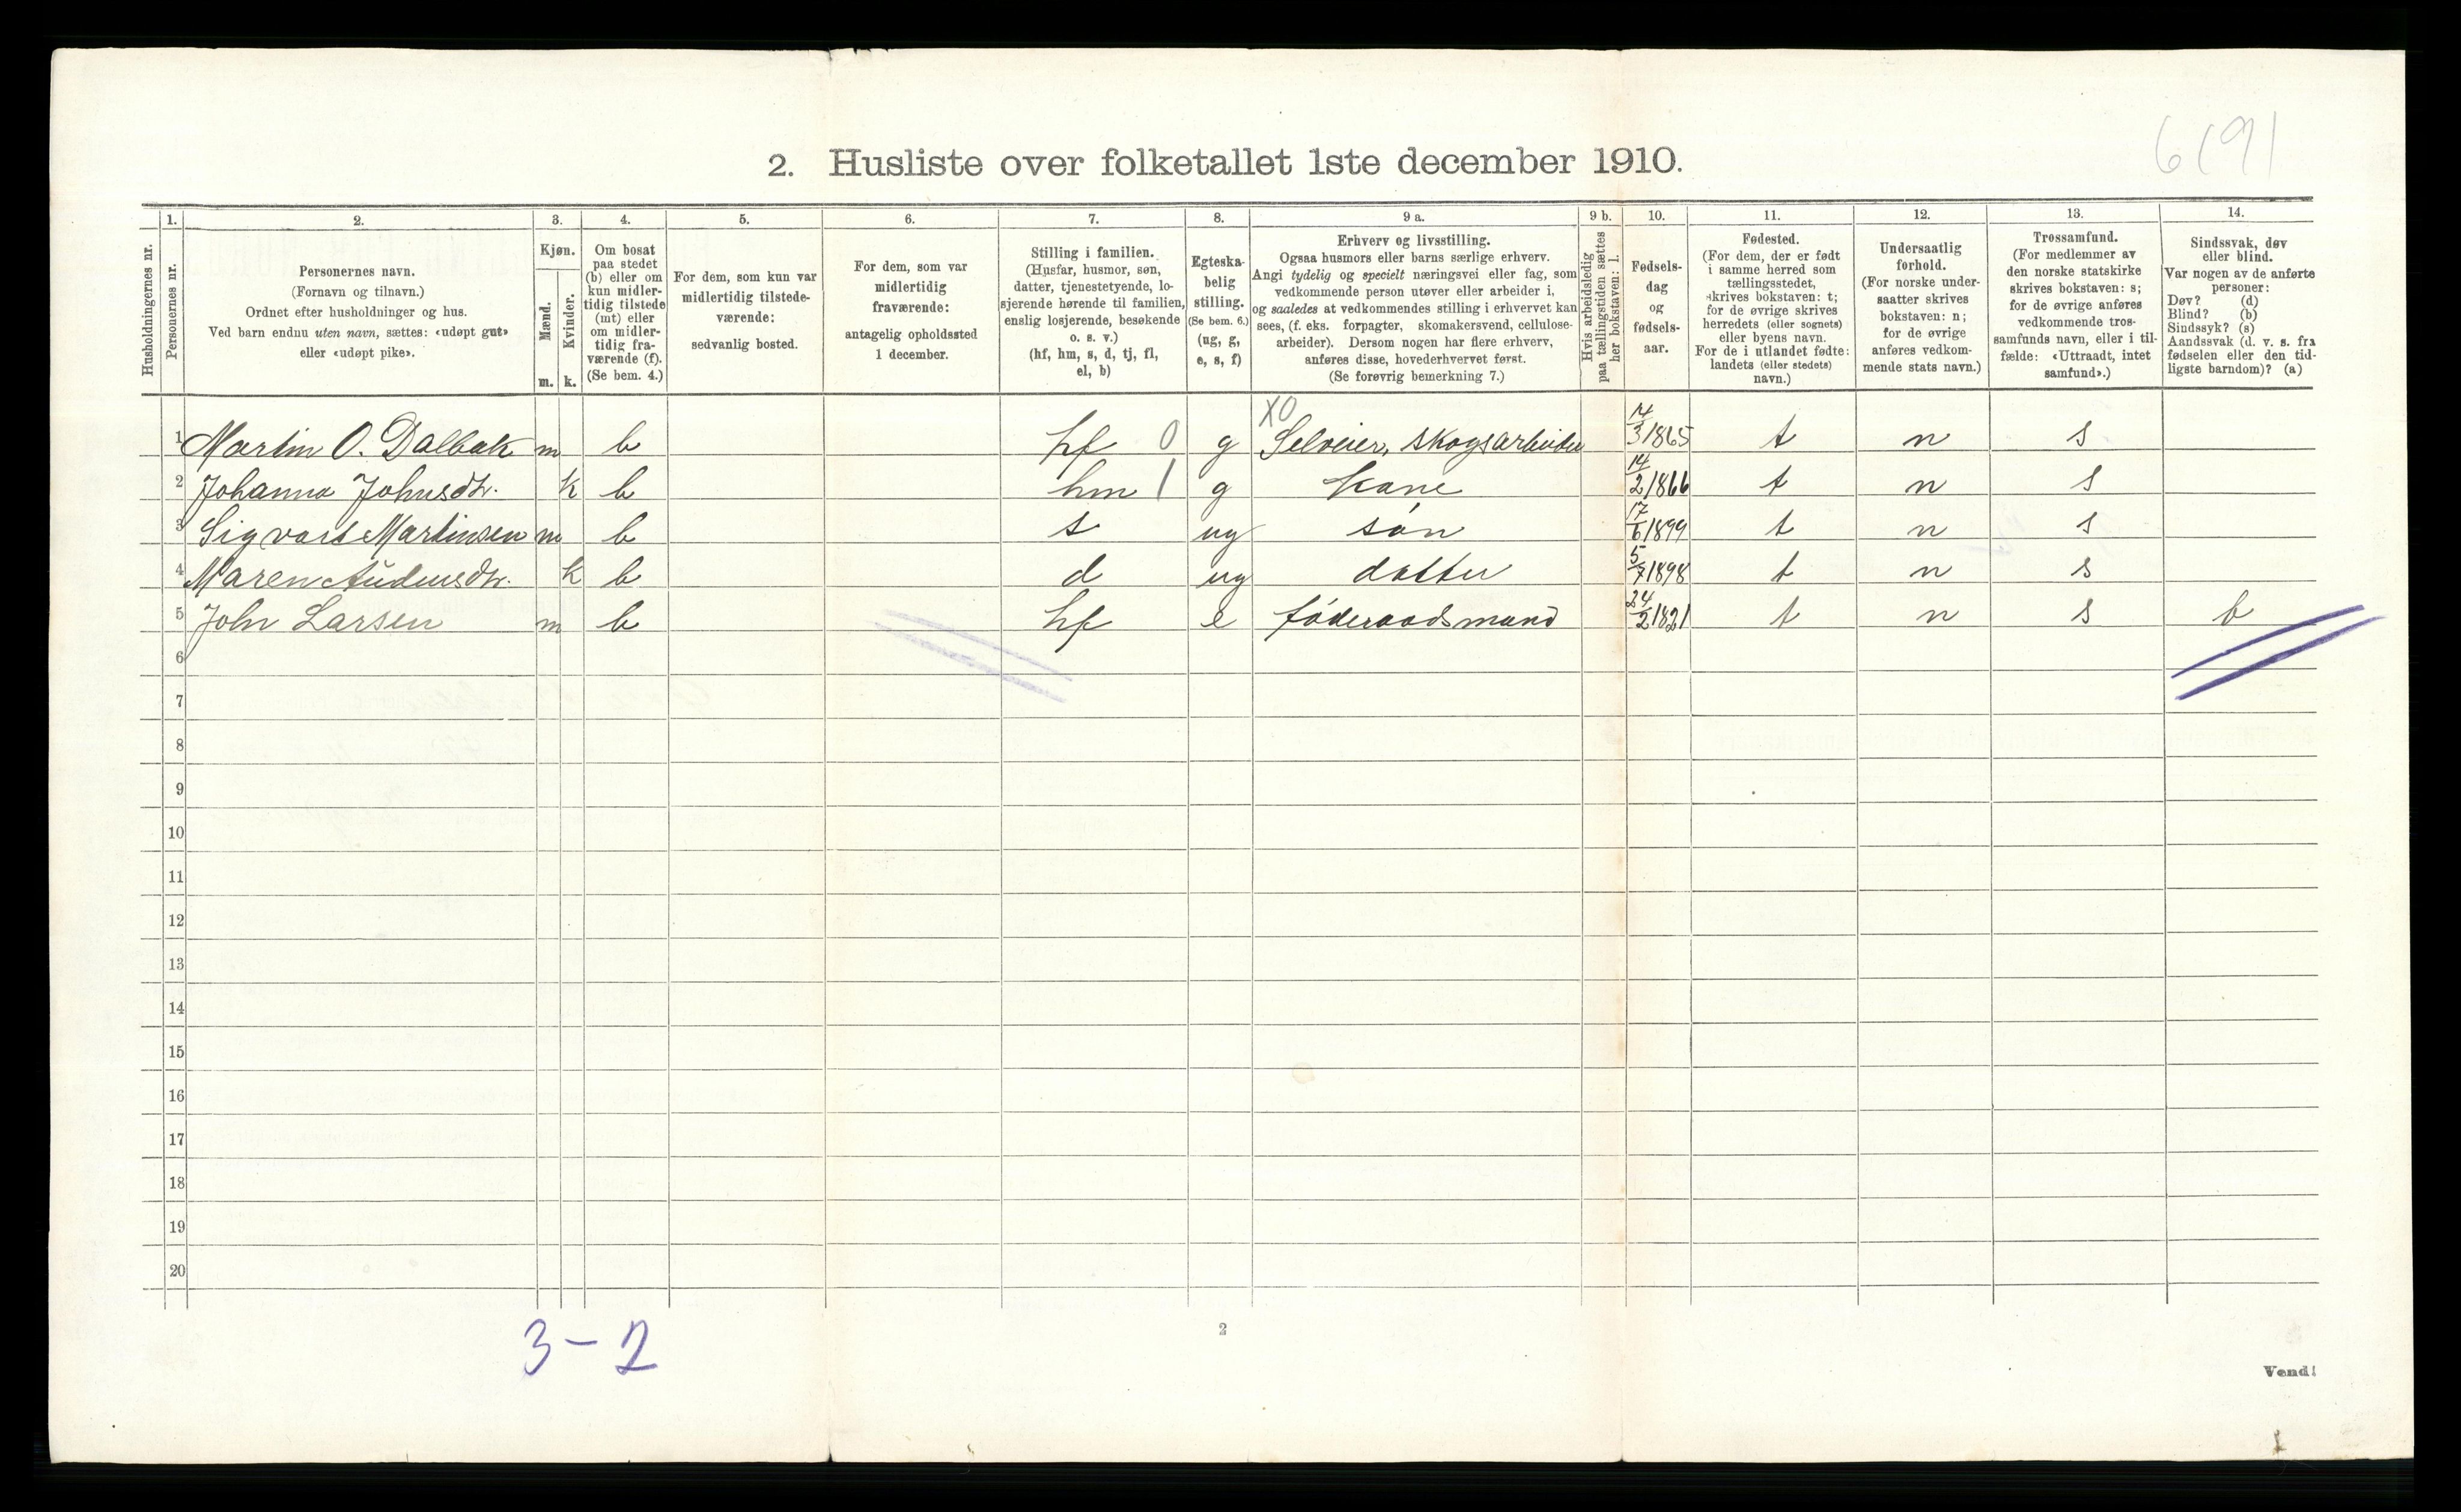 6191
2. Husliste over folketallet 1ste december 1910.
Husholdningernes nr.
1. Personernes nr.
2. Personernes navn. (Fornavn og tilnavn.) Ordnet efter husholdninger og hus. Ved barn endnu uten navn, sættes: «udøpt gut» eller «udøpt pike».
3. Kjøn. Mænd. m. Kvinder. k.
4. Om bosat paa stedet (b) eller om kun midler-tidig tilstede (mt) eller om midler-tidig fra-værende (f). (Se bem. 4.)
5. For dem, som kun var midlertidig tilstede-værende: sedvanlig bosted.
6. For dem, som var midlertidig fraværende: antagelig opholdssted 1 december.
7. Stilling i familien. (Husfar, husmor, søn, datter, tjenestetyende, lo-sjerende hørende til familien, enslig losjerende, besøkende o. s. v.) (hf, hm, s, d, tj, fl, el, b)
8. Egteska-belig stilling. (Se bem. 6.) (ug, g, e, s, f)
9 a. Erhverv og livsstilling. Ogsaa husmors eller barns særlige erhverv. Angi tydelig og specielt næringsvei eller fag, som vedkommende person utøver eller arbeider i, og saaledes at vedkommendes stilling i erhvervet kan sees, (f. eks. forpagter, skomakersvend, cellulose-arbeider). Dersom nogen har flere erhverv, anføres disse, hovederhvervet først. (Se forøvrig bemerkning 7.)
9 b. Hvis arbeidsledig paa tællingstiden sættes her bokstaven: l.
10. Fødsels-dag og fødsels-aar.
11. Fødested. (For dem, der er født i samme herred som tællingsstedet, skrives bokstaven: t; for de øvrige skrives herredets (eller sognets) eller byens navn. For de i utlandet fødte: landets (eller stedets) navn.)
12. Undersaatlig forhold. (For norske under-saatter skrives bokstaven: n; for de øvrige anføres vedkom-mende stats navn.)
13. Trossamfund. (For medlemmer av den norske statskirke skrives bokstaven: s; for de øvrige anføres vedkommende tros-samfunds navn, eller i til-fælde: «Uttraadt, intet samfund».)
14. Sindssvak, døv eller blind. Var nogen av de anførte personer: Døv? (d) Blind? (b) Sindssyk? (s) Aandssvak (d. v. s. fra fødselen eller den tid-ligste barndom)? (a)
X0
1 Martin O. Dalbak m b hf 0 g Selveier, skogsarbeider 14/3 1865 t n s
2 Johanna Johnsdtr. k b hm 1 g kone 14/2 1866 t n s
3 Sigvart Martinsen m b s ug søn 17/6 1899 t n s
4 Maren Audensdtr. k b d ug datter 5/7 1898 t n s
5 John Larsen m b hf e føderaadsmand 24/2 1821 t n s b
6
7
8
9
10
11
12
13
14
15
16
17
18
19
20
3 - 2
2
Vend!